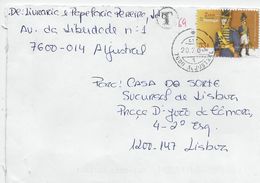 De: Livraria e Papelaria Pereira, Lda
Av. da Liberdade nº 1
7600-014 Aljustrel
T
Portugal
20.2.0
Para: CASA DA SORTE
Sucursal de Lisboa
Praça D. João da Câmara,
4-2º Esq.
1200-147 Lisboa